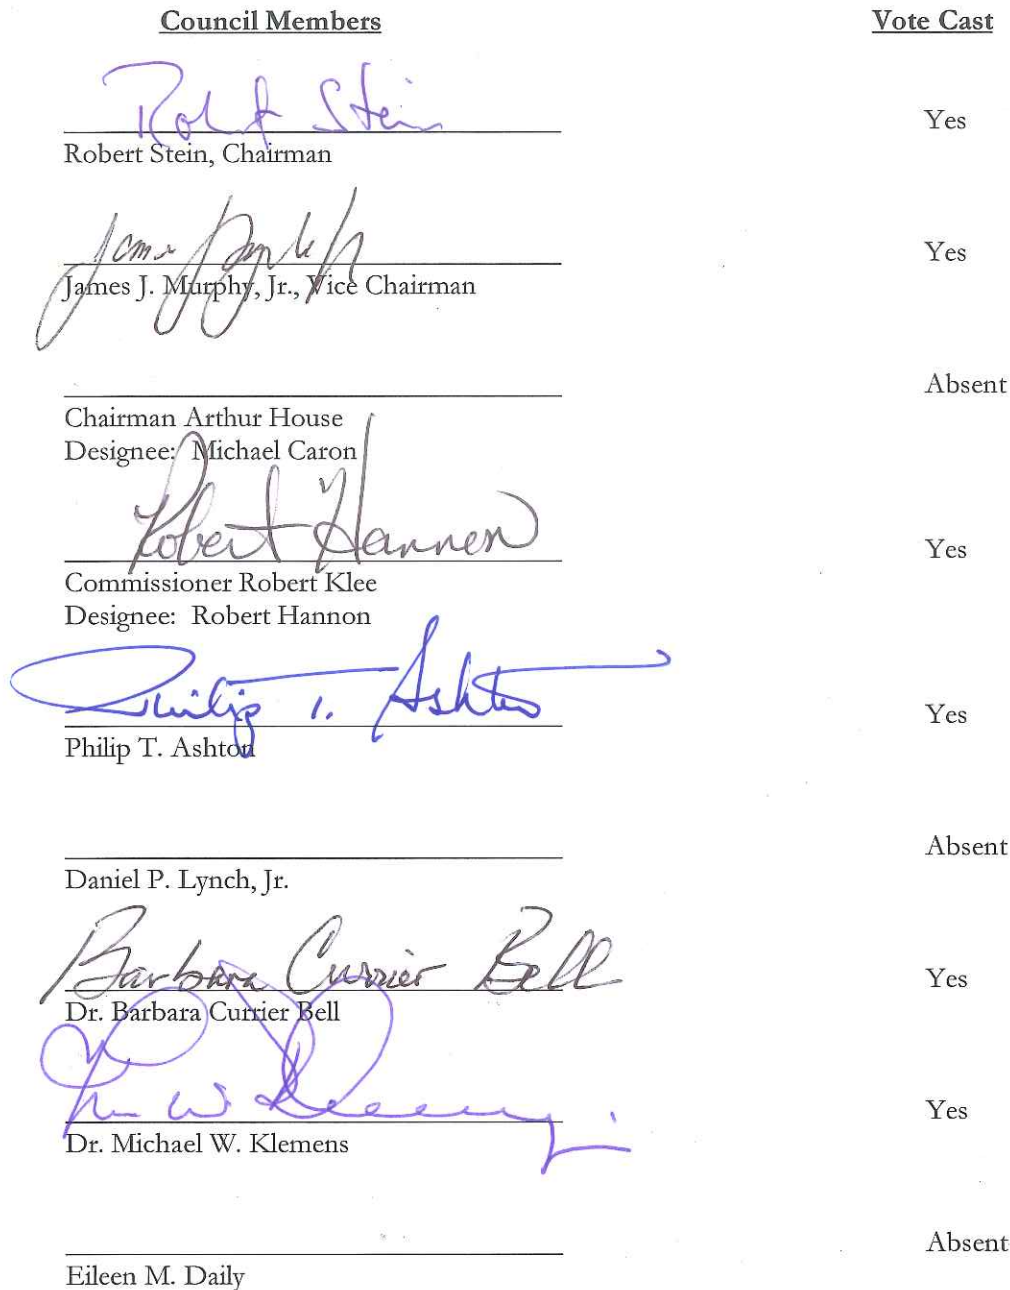 Council Members Vote Cast
Robert Stein Yes
Robert Stein, Chairman
James Murphy Jr Yes
James J. Murphy, Jr., Vice Chairman
Absent
Chairman Arthur House
Designee: Michael Caron
Robert Hannon Yes
Commissioner Robert Klee
Designee: Robert Hannon
Philip T. Ashton Yes
Philip T. Ashton
Absent
Daniel P. Lynch, Jr.
Barbara Currier Bell Yes
Dr. Barbara Currier Bell
Yes
Dr. Michael W. Klemens
Absent
Eileen M. Daily